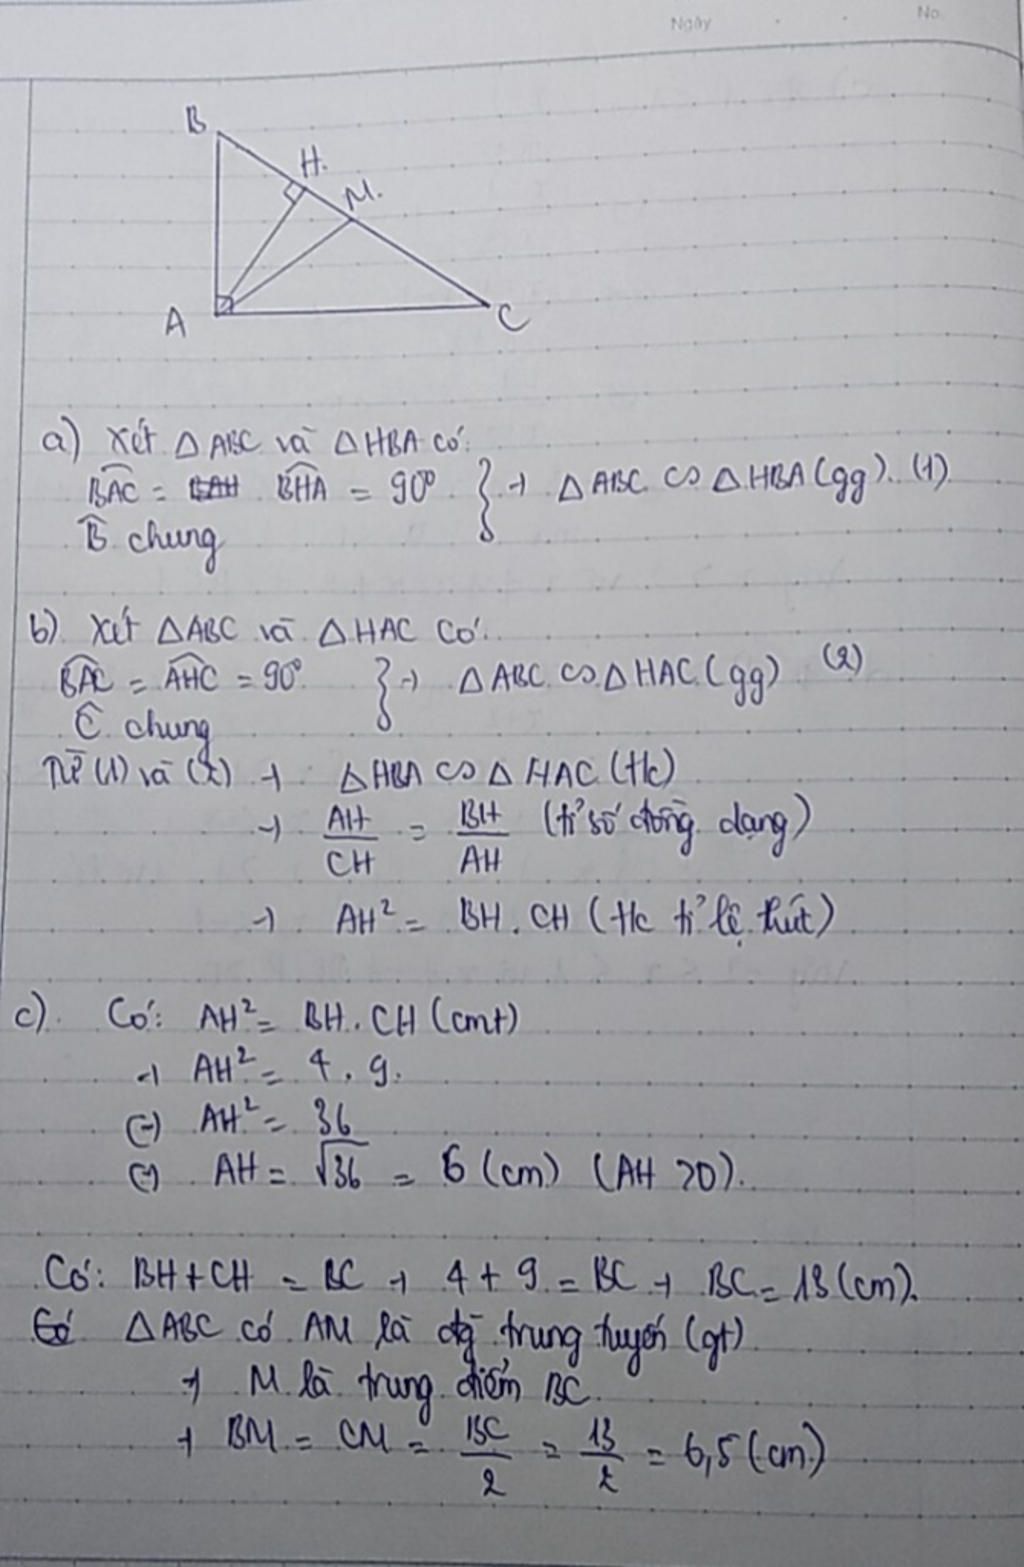 Ngày
No.
B
H.
M.
A
C
a) Xét △ABC và △HBA có:
BAC = BHA = 90° } → △ABC ∽ △HBA (gg). (1)
B̂ chung
b) Xét △ABC và △HAC có:
BAC = AHC = 90° } → △ABC ∽ △HAC (gg) (2)
Ĉ chung
Từ (1) và (2) → △HBA ∽ △HAC (t/c)
→ AH/CH = BH/AH (tỉ số đồng dạng)
→ AH² = BH . CH (t/c tỉ lệ thức)
c). Có: AH² = BH . CH (cmt)
→ AH² = 4 . 9.
(=) AH² = 36
(=) AH = √36 = 6 (cm) (AH >0).
Có: BH + CH = BC → 4 + 9 = BC → BC = 13 (cm).
△ABC có AM là đg trung tuyến (gt)
→ M là trung điểm BC.
→ BM = CM = BC/2 = 13/2 = 6,5 (cm)